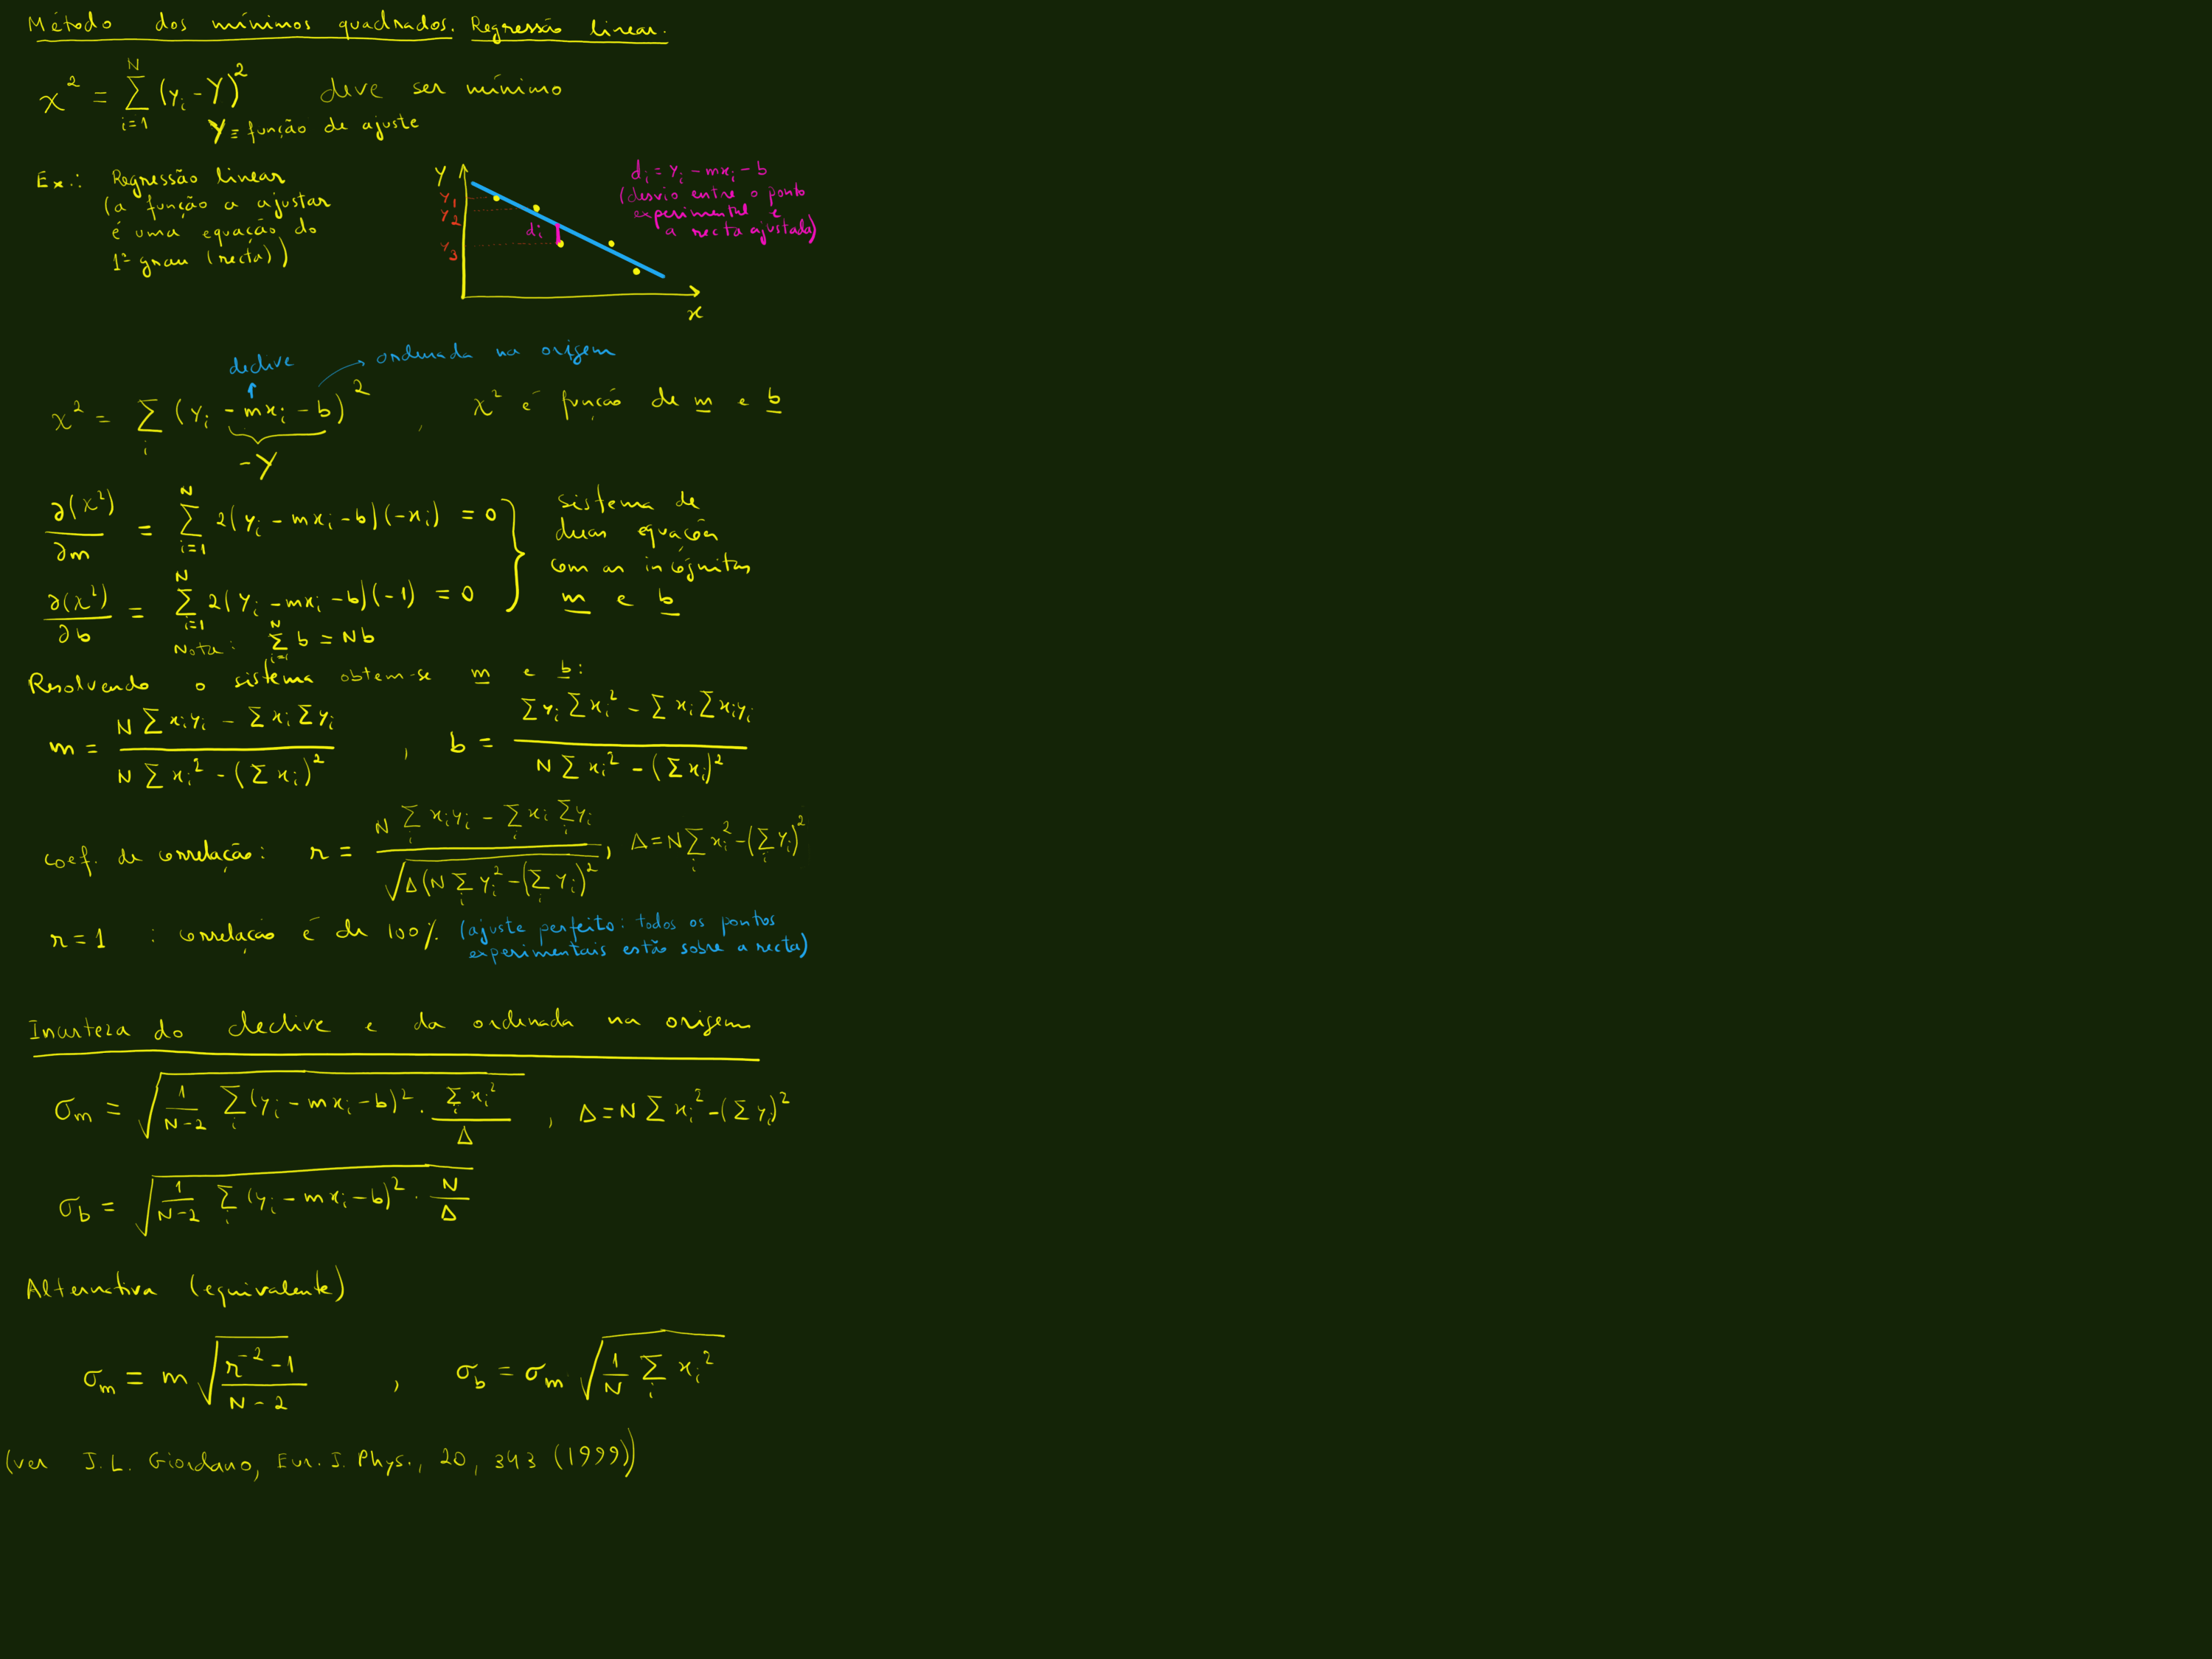 Método dos mínimos quadrados. Regressão linear.
χ² = ∑_{i=1}^{N} (y_i - Y)² deve ser mínimo
Y ≡ função de ajuste
Ex.: Regressão linear
(a função a ajustar
é uma equação do
1º grau (recta))
Y
y_1
y_2
y_3
d_i
x
d_i = y_i - mx_i - b
(desvio entre o ponto
experimental e
a recta ajustada)
declive
ordenada na origem
χ² = ∑_i (y_i - mx_i - b)² , χ² é função de m e b
-Y
∂(χ²)/∂m = ∑_{i=1}^{N} 2(y_i - mx_i - b)(-x_i) = 0
∂(χ²)/∂b = ∑_{i=1}^{N} 2(y_i - mx_i - b)(-1) = 0
sistema de
duas equações
com as incógnitas
m e b
Nota: ∑_{i=1}^{N} b = Nb
Resolvendo o sistema obtem-se m e b:
m = (N ∑ x_i y_i - ∑ x_i ∑ y_i) / (N ∑ x_i² - (∑ x_i)²) , b = (∑ y_i ∑ x_i² - ∑ x_i ∑ x_i y_i) / (N ∑ x_i² - (∑ x_i)²)
coef. de correlação: r = (N ∑_i x_i y_i - ∑_i x_i ∑_i y_i) / √(Δ(N ∑_i y_i² - (∑_i y_i)²) , Δ = N ∑_i x_i² - (∑_i y_i)²
r = 1 : correlação é de 100% (ajuste perfeito: todos os pontos
experimentais estão sobre a recta)
Incerteza do declive e da ordenada na origem
σ_m = √(1/(N-2) ∑_i (y_i - mx_i - b)² · ∑_i x_i²/Δ) , Δ = N ∑ x_i² - (∑ y_i)²
σ_b = √(1/(N-2) ∑_i (y_i - mx_i - b)² · N/Δ)
Alternativa (equivalente)
σ_m = m √((r⁻² - 1)/(N - 2)) , σ_b = σ_m √(1/N ∑_i x_i²)
(ver J.L. Giordano, Eur. J. Phys., 20, 343 (1999))